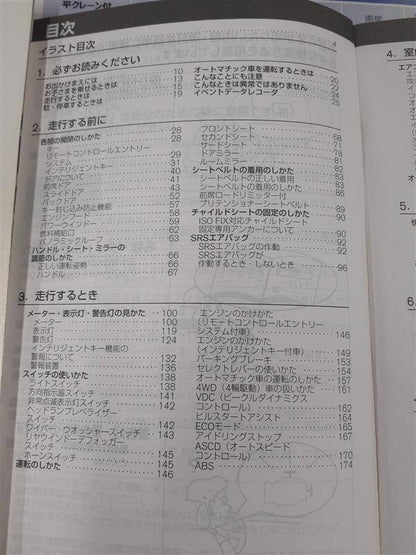 平クレーン付
目次
イラスト目次 4
1. 必ずお読みください
お出かけまえには 10
お子さまを乗せるときは 13
走行するときは 15
駐・停車するときは 19
オートマチック車を運転するときは 20
こんなことにも注意 22
こんなときは異常ではありません 24
イベントデータレコーダ 25
2. 走行する前に
各部の開閉のしかた 28
キー 28
リモートコントロールエントリー
システム 29
インテリジェントキー 31
ドアについて 40
前席ドア 41
スライドドア 43
バックドア 52
キー封じ込み防止機能 57
エンジンフード 58
パワーウインドー 59
燃料給油口 62
パノラミックルーフ 63
ハンドル・シート・ミラーの
調節のしかた 66
正しい運転姿勢 66
ハンドル 67
フロントシート 68
セカンドシート 71
サードシート
ドアミラー 79
ルームミラー 81
シートベルトの着用のしかた 82
シートベルトの正しい着用 83
シートベルトの着用のしかた 83
前席ロードリミッター付
プリテンショナーシートベルト 89
チャイルドシートの固定のしかた 90
ISO FIX対応チャイルドシート
固定専用アンカーについて 90
SRSエアバッグ 92
SRSエアバッグの作動 92
SRSエアバッグが
作動するとき しないとき 96
3. 走行するとき
メーター・表示灯・警告灯の見かた 100
メーター 100
表示灯 119
警告灯 124
インテリジェントキー機能の
警報について 132
警報装置 136
スイッチの使いかた 138
ライトスイッチ 138
方向指示器スイッチ 141
非常点滅表示灯スイッチ 142
ヘッドランプレベライザー
スイッチ 142
ワイパー・ウオッシャースイッチ 143
リヤウインドーデフォッガー
スイッチ 145
ホーンスイッチ 145
運転のしかた 146
エンジンのかけかた
(リモートコントロールエントリー
システム付車) 146
エンジンのかけかた
(インテリジェントキー付車) 149
パーキングブレーキ 153
セレクトレバーの使いかた 154
オートマチック車の運転のしかた 157
4WD (4輪駆動)車の扱いかた 161
VDC (ビークルダイナミクス
コントロール) 162
ヒルスタートアシスト 164
ECOモード 165
アイドリングストップ 167
ASCD (オートスピード
コントロール) 170
ABS 174
4. 室
5.
6.